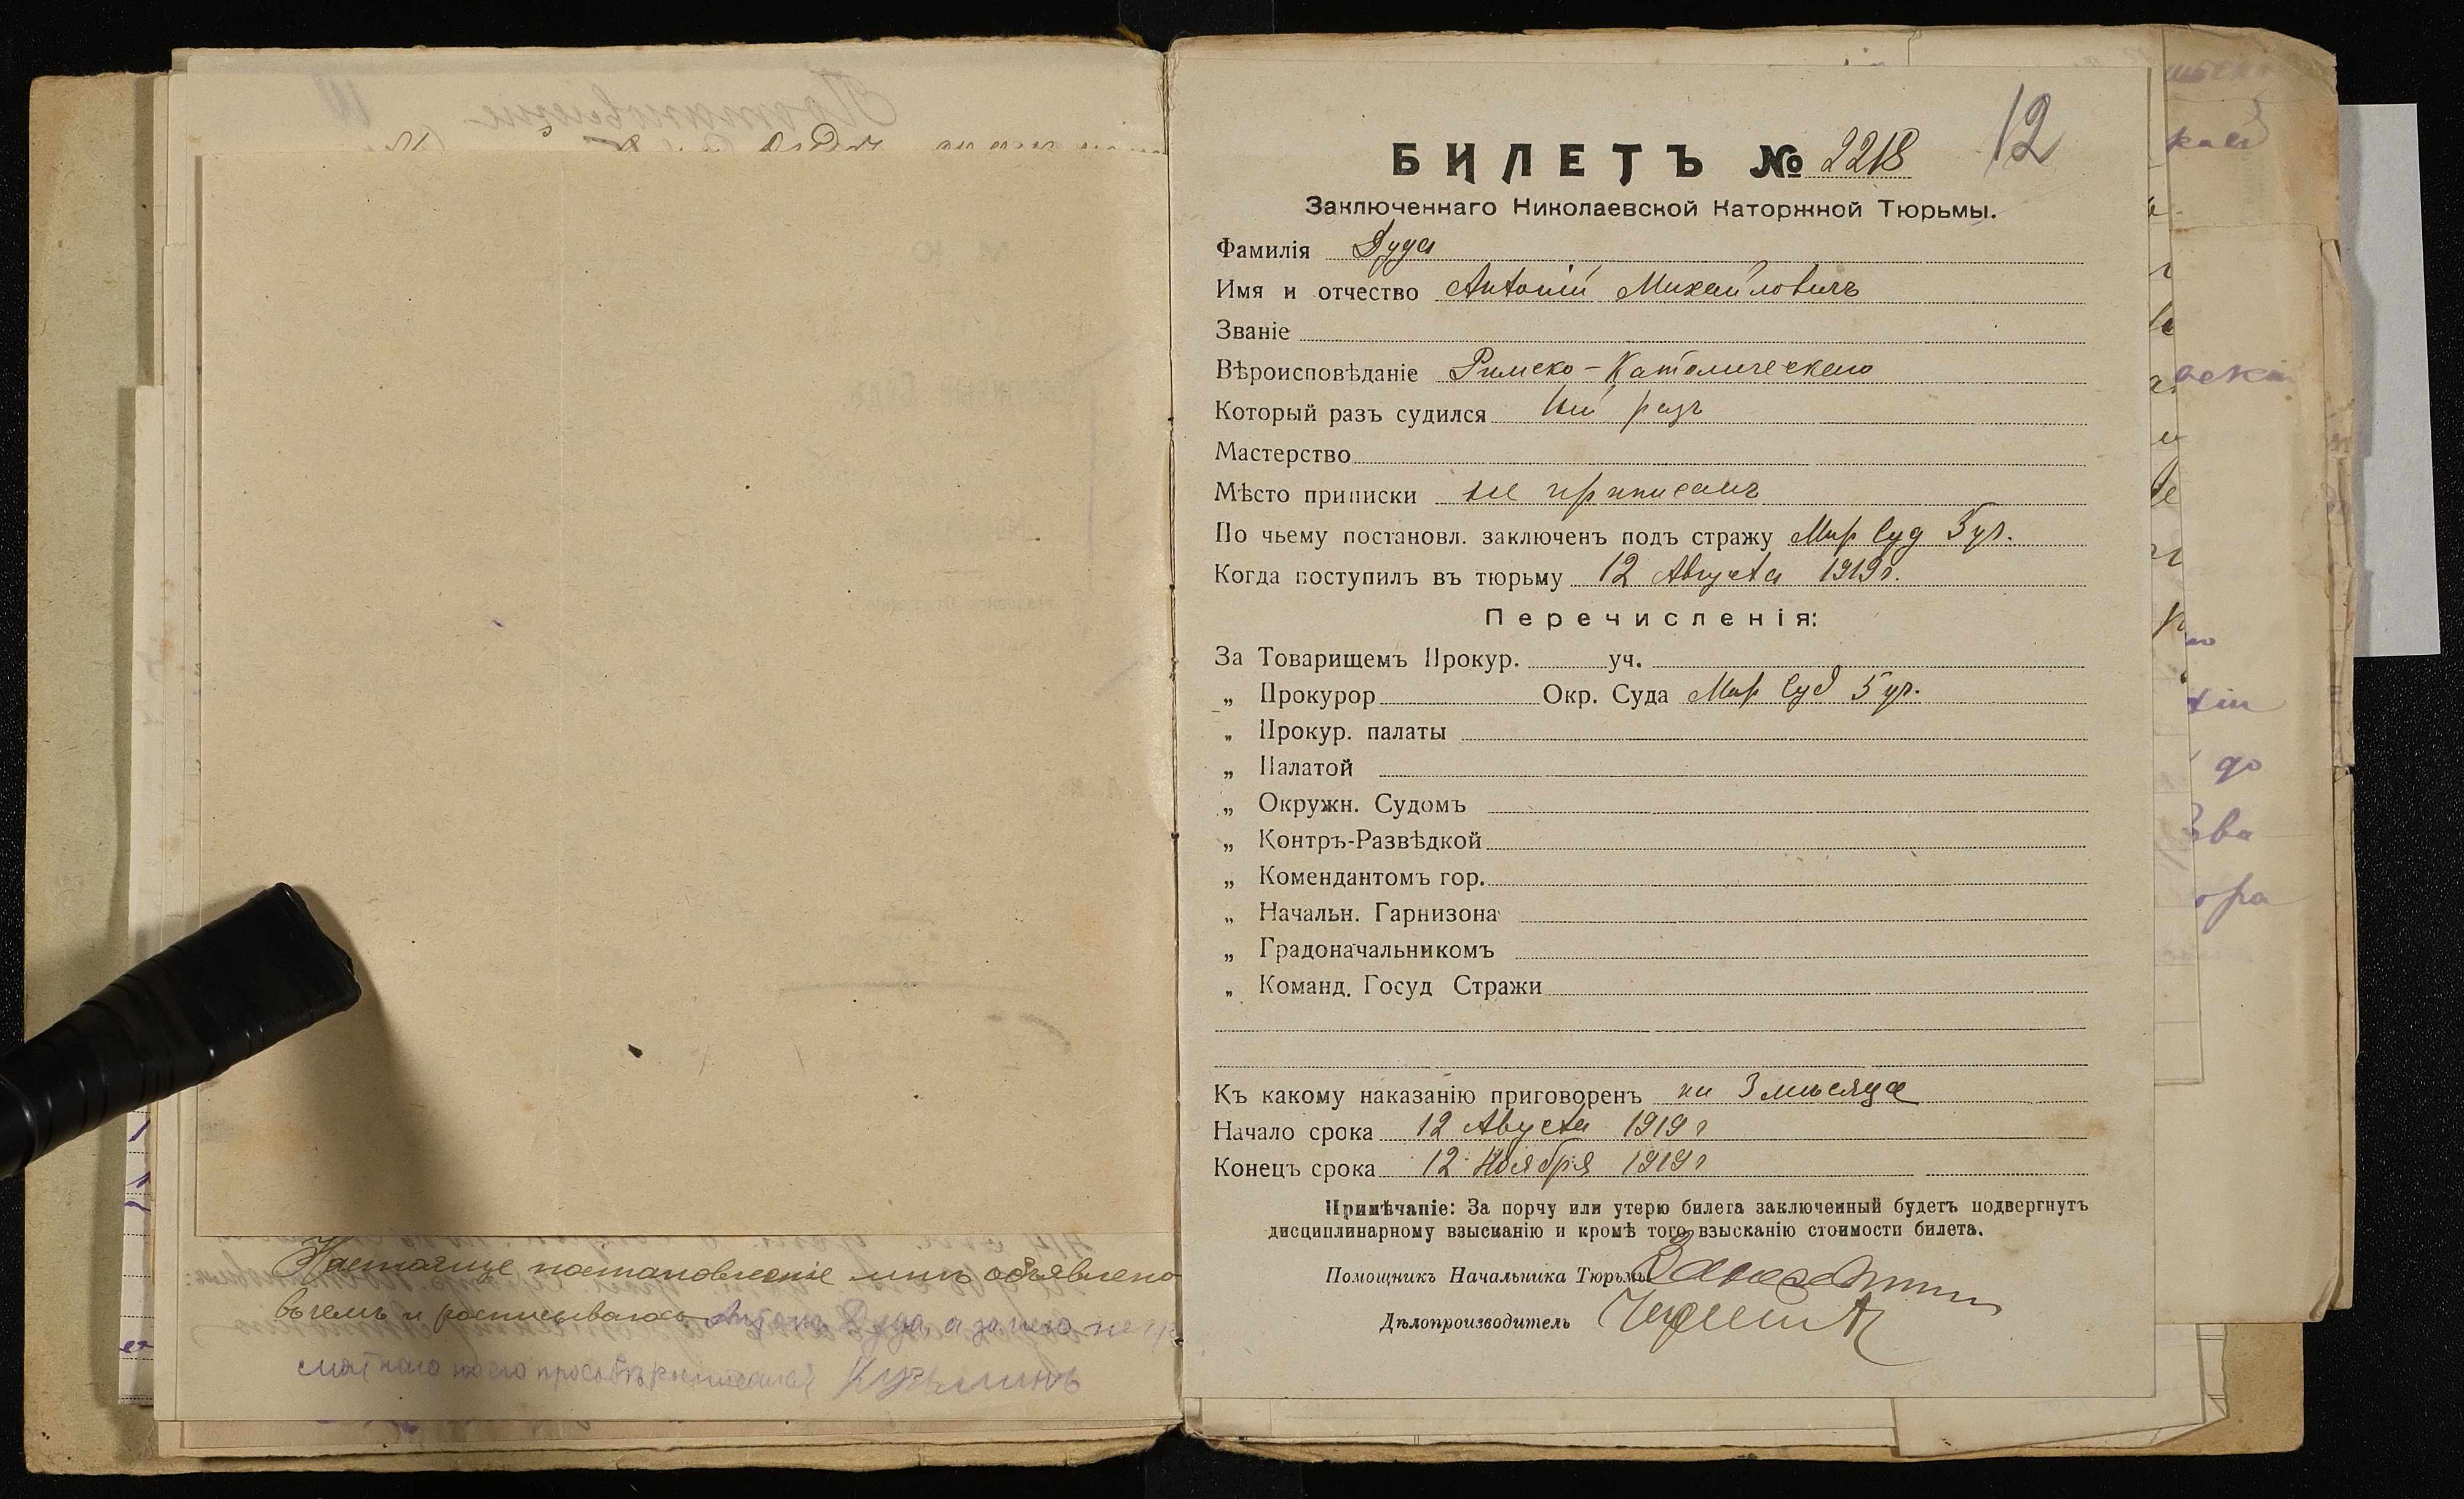 Настоящее постановленіе мнѣ объявлено
въ чемъ и росписываюсь Антонъ Дуда, а за него негра
мотнаго по его просьбѣ росписался Кузьминъ
12
БИЛЕТЪ № 2218
Заключеннаго Николаевской Каторжной Тюрьмы.
Фамилія Дуда
Имя и отчество Антоній Михайловичъ
Званіе
Вѣроисповѣданіе Римско-Католическаго
Который разъ судился разъ
Мастерство
Мѣсто приписки не приписанъ
По чьему постановл. заключенъ подъ стражу Мир Суд 5 уч.
Когда поступилъ въ тюрьму 12 Августа 1919 г.
Перечисленія:
За Товарищемъ Прокур. уч.
„ Прокурор Окр. Суда Мир Суд 5 уч.
„ Прокур. палаты
„ Палатой
„ Окружн. Судомъ
„ Контръ-Развѣдкой
„ Комендантомъ гор.
„ Начальн. Гарнизона
„ Градоначальникомъ
„ Команд. Госуд Стражи
Къ какому наказанію приговоренъ на 3 мѣсяца
Начало срока 12 Августа 1919 г
Конецъ срока 12 Ноября 1919 г
Примѣчаніе: За порчу или утерю билета заключенный будетъ подвергнутъ
дисциплинарному взысканію и кромѣ того взысканію стоимости билета.
Помощникъ Начальника Тюрьмы
Дѣлопроизводитель